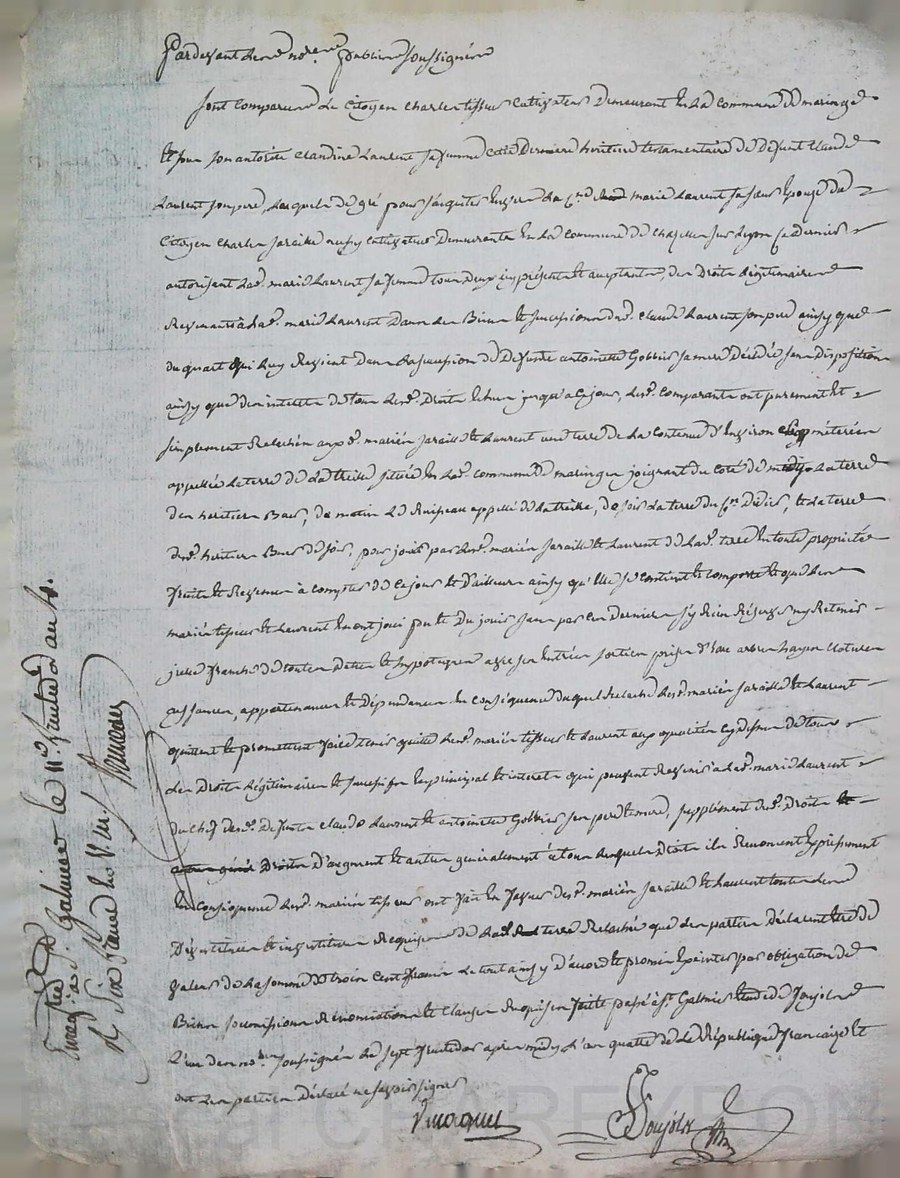 Pardevant les nres publics soussignés
sont comparus le Citoyen Charles tisseur Cultivateur Demeurant En la commune de maringes
Et sous son autorité Claudine Laurent sa femme cette Derniere heritiere testamentaire de Deffunt Claude
Laurent son pere, Laquelle de gré pour s'acquitter Envers La Cne marie Laurent sa sœur Epouze du
Citoyen Charles jaraille aussy cultivateur Demeurants En la commune de Chazelles sur Lyon Ce Dernier
autorisant lad. marie Laurent sa femme tous deux icy présents Et acceptants, des Droits légitimaires
Revenants à lad. marie Laurent Dans les Biens Et succession dud. Claude Laurent son pere ainsy que
du quart qui luy Revient Dans la succession de Deffunte antoinette Gobbier sa mere Décédée sans Disposition
ainsy que des interets de tous lesd. Droits Echus jusqu'a ce jour, lesd. comparants ont purement Et
simplement Relaché aux d. mariés jaraille Et Laurent une terre de la contenue d'Environ métérées
appellée La terre de la treille située En lad. commune de maringes joignant du coté de la terre
des heritiers Bars, de matin Le Ruisseau appellé de la treille, de soir la terre du Cen Didier, Et la terre
desd. heritiers Bars de soir, pour jouir par lesd. mariés jaraille Et Laurent de lad. terre En toute propriété
fruits Et Revenus à compter de ce jour Et d'ailleurs ainsy qu'Elle se contient Et comporte Et que lesd.
mariés tissieur Et Laurent En ont joui pu Et Du jouir sans par ces Derniers s'y Rien Réserver ny Retenir
icelle franche de toutes Dettes Et hypoteques avec ses Entrées sorties prises d'Eau arbres hayes Clotures
aysances, appartenances Et Dépendances En Conséquence duquel Relaché lesd. mariés jaraille Et Laurent
quittent Et promettent faire tenir quitte lesd. mariés tissieur Et Laurent aux qualités cy dessus de tous
les Droits légitimaires Et successifs En principal Et interets qui peuvent Revenir à lad. marie Laurent
du Chef desd. Deffunts Claude Laurent Et antoinette Gobbier ses pere Et mere, supplément desd. Droits
Droits D'augment Et autres généralement à tous lesquels Droits ils Renoncent Expressément
En Conséquence lesd. mariés tissieur ont fait En faveur desd. mariés jaraille Et Laurent toutes les
Dévestitures Et investitures Requises de lad. terre Relachée que les parties Déclarent Etre de
valeur de la somme de trois Cent francs Le tout ainsy d'accord Et promis Exécuter par obligation de
Biens soumissions Rénonciations Et clauses Requises fait Et passé à St Galmier Etude de Poujolet
L'un des nres soussignés Le sept fructidor après midy L'an quatre de la République française Et
ont les parties Déclaré ne sçavoir signer
Poujolet
Enregistré à St Galmier le 11e fructidor an 4.
R Six francs